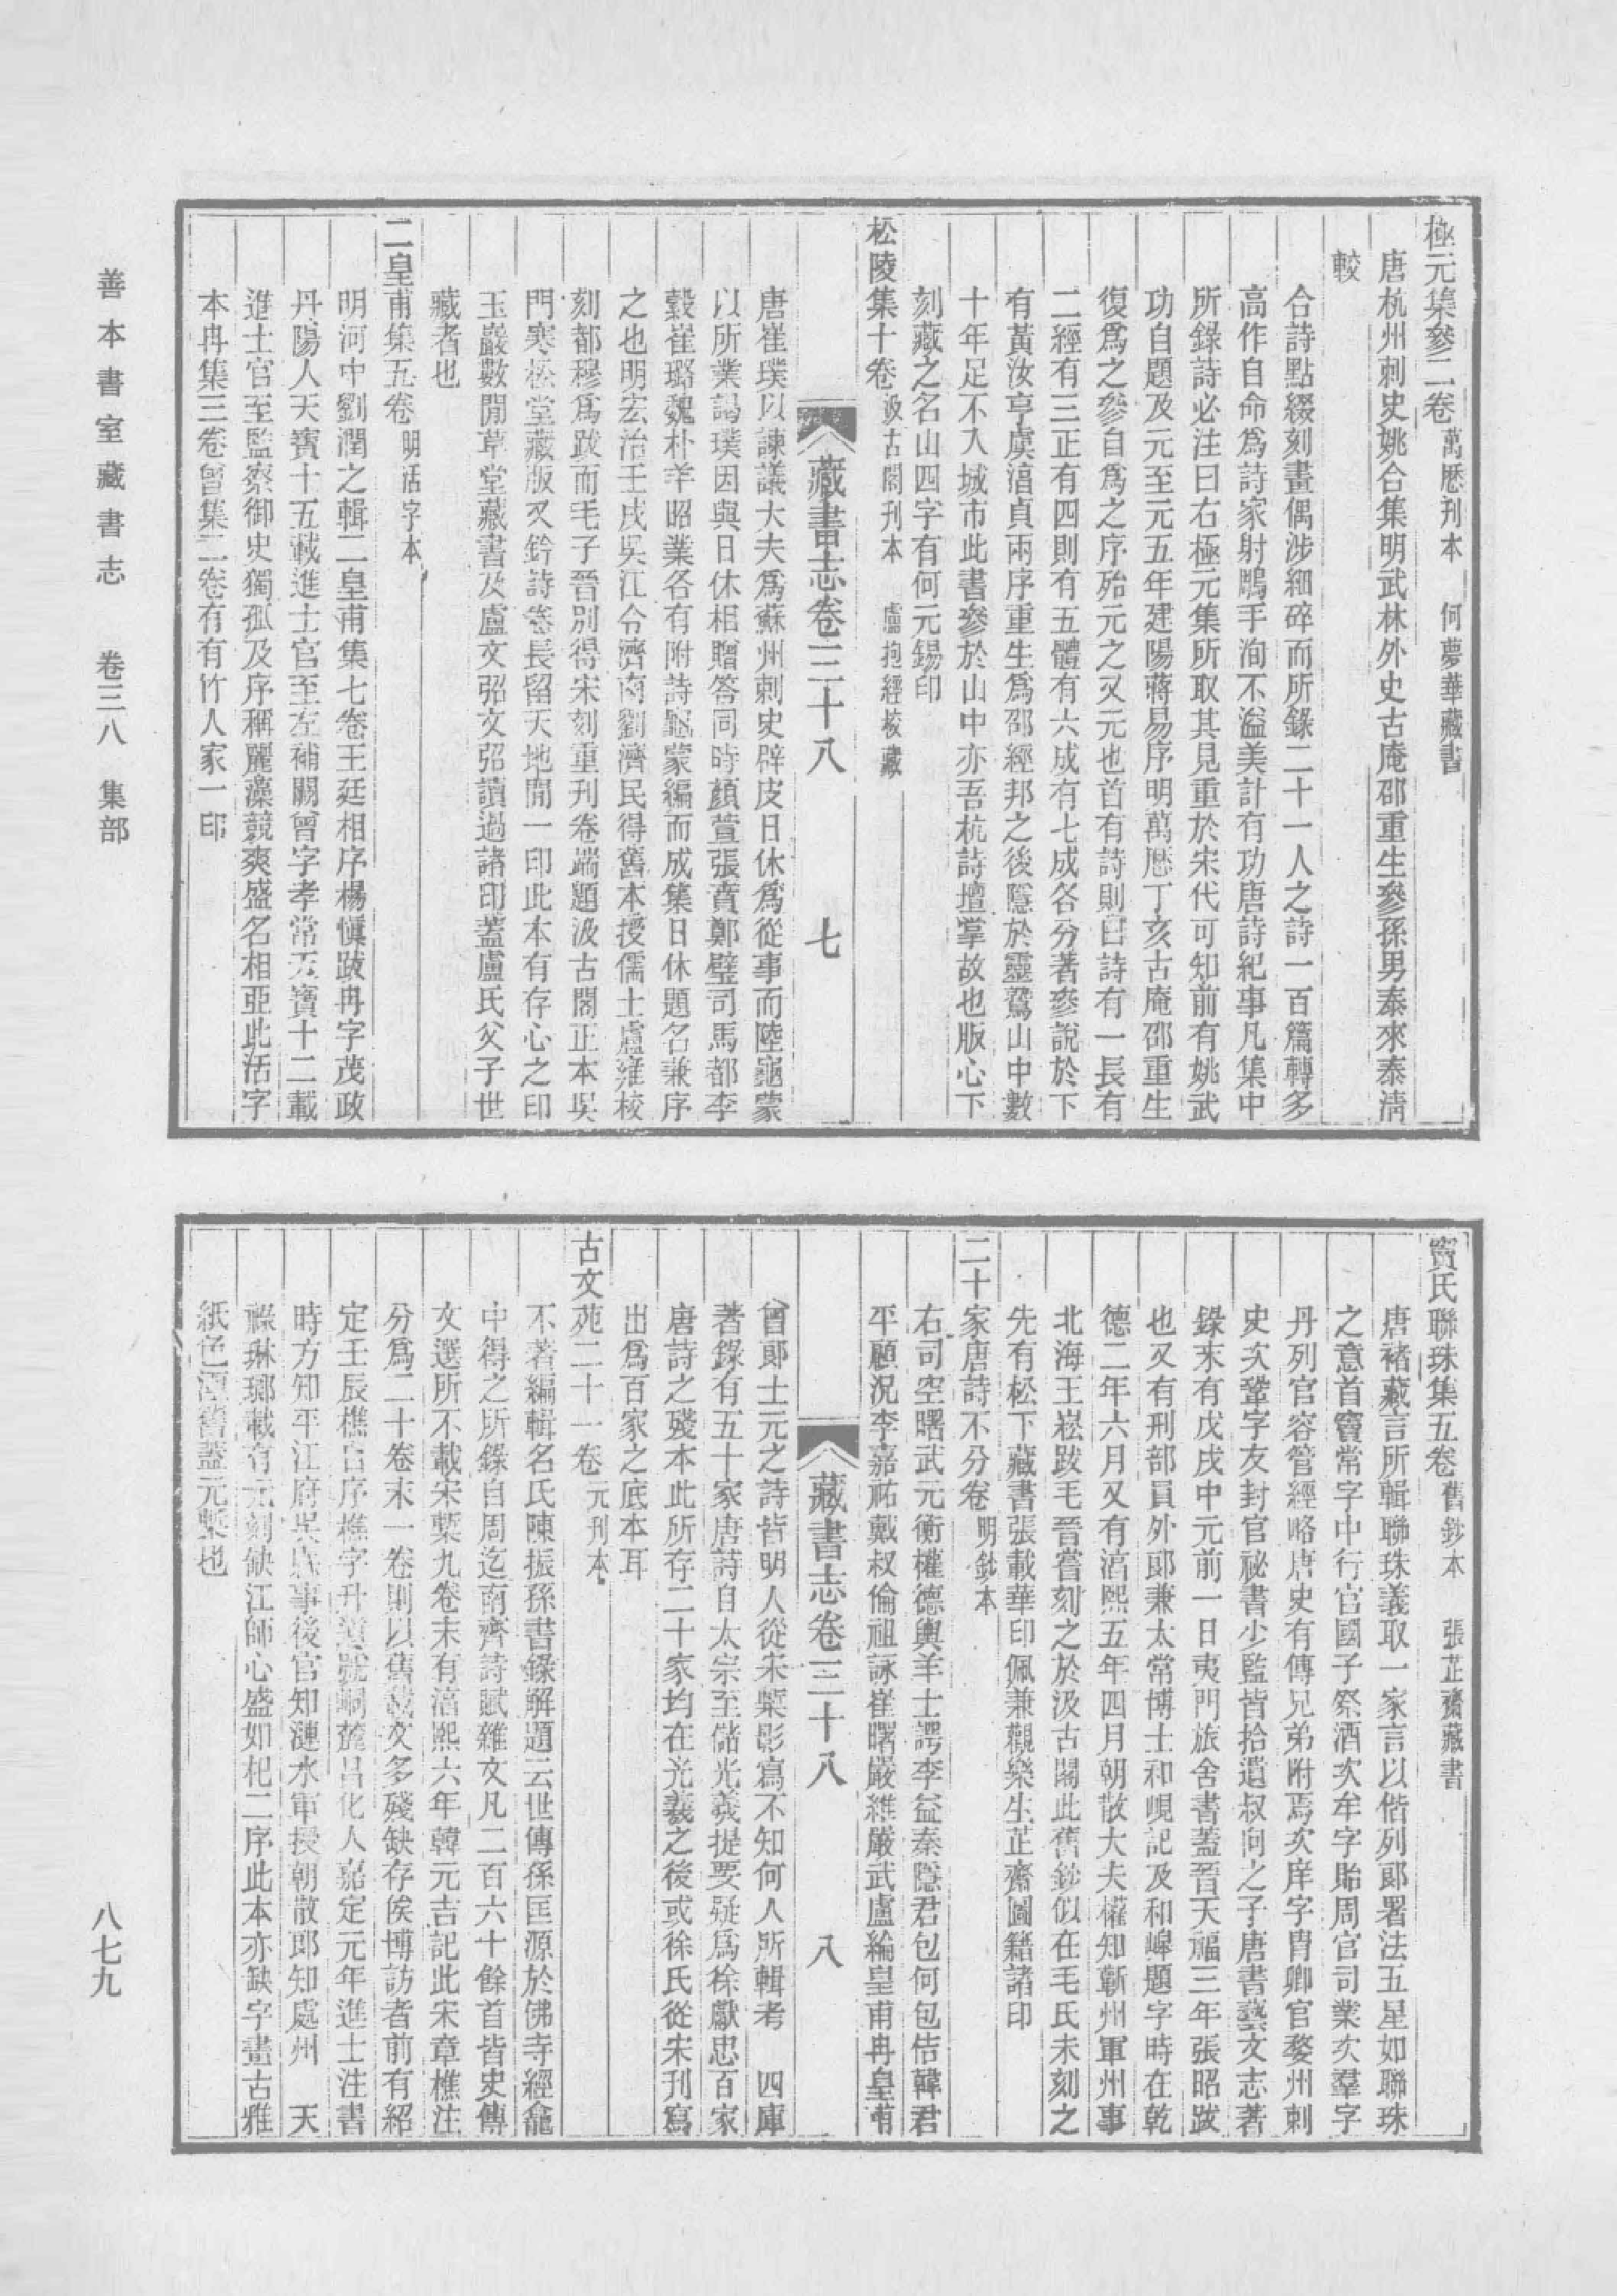 極元集參二卷 萬厯刊本 何夢華藏書
唐杭州刺史姚合集明武林外史古庵邵重生參孫男泰來泰清
較
合詩點綴刻畫偶涉細碎而所錄二十一人之詩一百篇轉多
高作自命爲詩家射鵰手洵不溢美計有功唐詩紀事凡集中
所錄詩必注曰右極元集所取其見重於宋代可知前有姚武
功自題及元至元五年建陽蔣易序明萬厯丁亥古庵邵重生
復爲之參自爲之序殆元之又元也首有詩則曰詩有一長有
二經有三正有四則有五體有六成有七成各分著參說於下
有黃汝亨虞淯貞兩序重生爲邵經邦之後隱於靈鷲山中數
十年足不入城市此書參於山中亦吾杭詩壇掌故也版心下
刻藏之名山四字有何元錫印
松陵集十卷 汲古閣刊本 盧抱經校藏
藏書志卷三十八 七
唐崔璞以諫議大夫爲蘇州刺史辟皮日休爲從事而陸龜蒙
以所業謁璞因與日休相贈答同時顏萱張賁鄭璧司馬都李
縠崔璐魏朴羊昭業各有附詩龜蒙編而成集日休題名兼序
之也明宏治壬戌吳江令濟南劉濟民得舊本授儒士盧雍校
刻都穆爲跋而毛子晉別得宋刻重刊卷端題汲古閣正本吳
門寒松堂藏版又鈐詩卷長留天地閒一印此本有存心之印
玉巖數閒草堂藏書及盧文弨文弨讀過諸印蓋盧氏父子世
藏者也
二皇甫集五卷 明活字本
明河中劉潤之輯二皇甫集七卷王廷相序楊愼跋冉字茂政
丹陽人天寶十五載進士官至左補闕曾字孝常天寶十二載
進士官至監察御史獨孤及序稱麗藻競爽盛名相亞此活字
本冉集三卷曾集二卷有有竹人家一印
竇氏聯珠集五卷 舊鈔本 張芷齋藏書
唐褚藏言所輯聯珠義取一家言以偕列郞署法五星如聯珠
之意首竇常字中行官國子祭酒次牟字貽周官司業次羣字
丹列官容管經略唐史有傳兄弟附焉次庠字胄卿官婺州刺
史次鞏字友封官祕書少監皆拾遺叔向之子唐書藝文志著
錄末有戊戌中元前一日夷門旅舍書蓋晉天福三年張昭跋
也又有刑部員外郞兼太常博士和峴記及和㠓題字時在乾
德二年六月又有淯熙五年四月朝散大夫權知蘄州軍州事
北海王崧跋毛晉嘗刻之於汲古閣此舊鈔似在毛氏未刻之
先有松下藏書張載華印佩兼觀樂生芷齋圖籍諸印
二十家唐詩不分卷 明鈔本
右司空曙武元衡權德輿羊士諤李益秦隱君包何包佶韓君
平顧況李嘉祐戴叔倫祖詠崔曙嚴維嚴武盧綸皇甫冉皇甫
藏書志卷三十八 八
曾郞士元之詩皆明人從宋槧影寫不知何人所輯考 四庫
著錄有五十家唐詩自太宗至儲光羲提要疑爲徐獻忠百家
唐詩之殘本此所存二十家均在光羲之後或徐氏從宋刊寫
出爲百家之底本耳
古文苑二十一卷 元刊本
不著編輯名氏陳振孫書錄解題云世傳孫匡源於佛寺經龕
中得之所錄自周迄南齊詩賦雜文凡二百六十餘首皆史傳
文選所不載宋槧九卷末有淯熙六年韓元吉記此宋章樵注
分爲二十卷末一卷則以舊載文多殘缺存俟博訪者前有紹
定壬辰樵自序樵字升道號峒麓昌化人嘉定元年進士注書
時方知平江府吳縣事後官知漣水軍授朝散郎知處州 天
祿琳瑯載有元刻缺江師心盛如杞二序此本亦缺字畫古雅
紙色湮舊蓋元槧也
善本書室藏書志 卷三八 集部
八七九